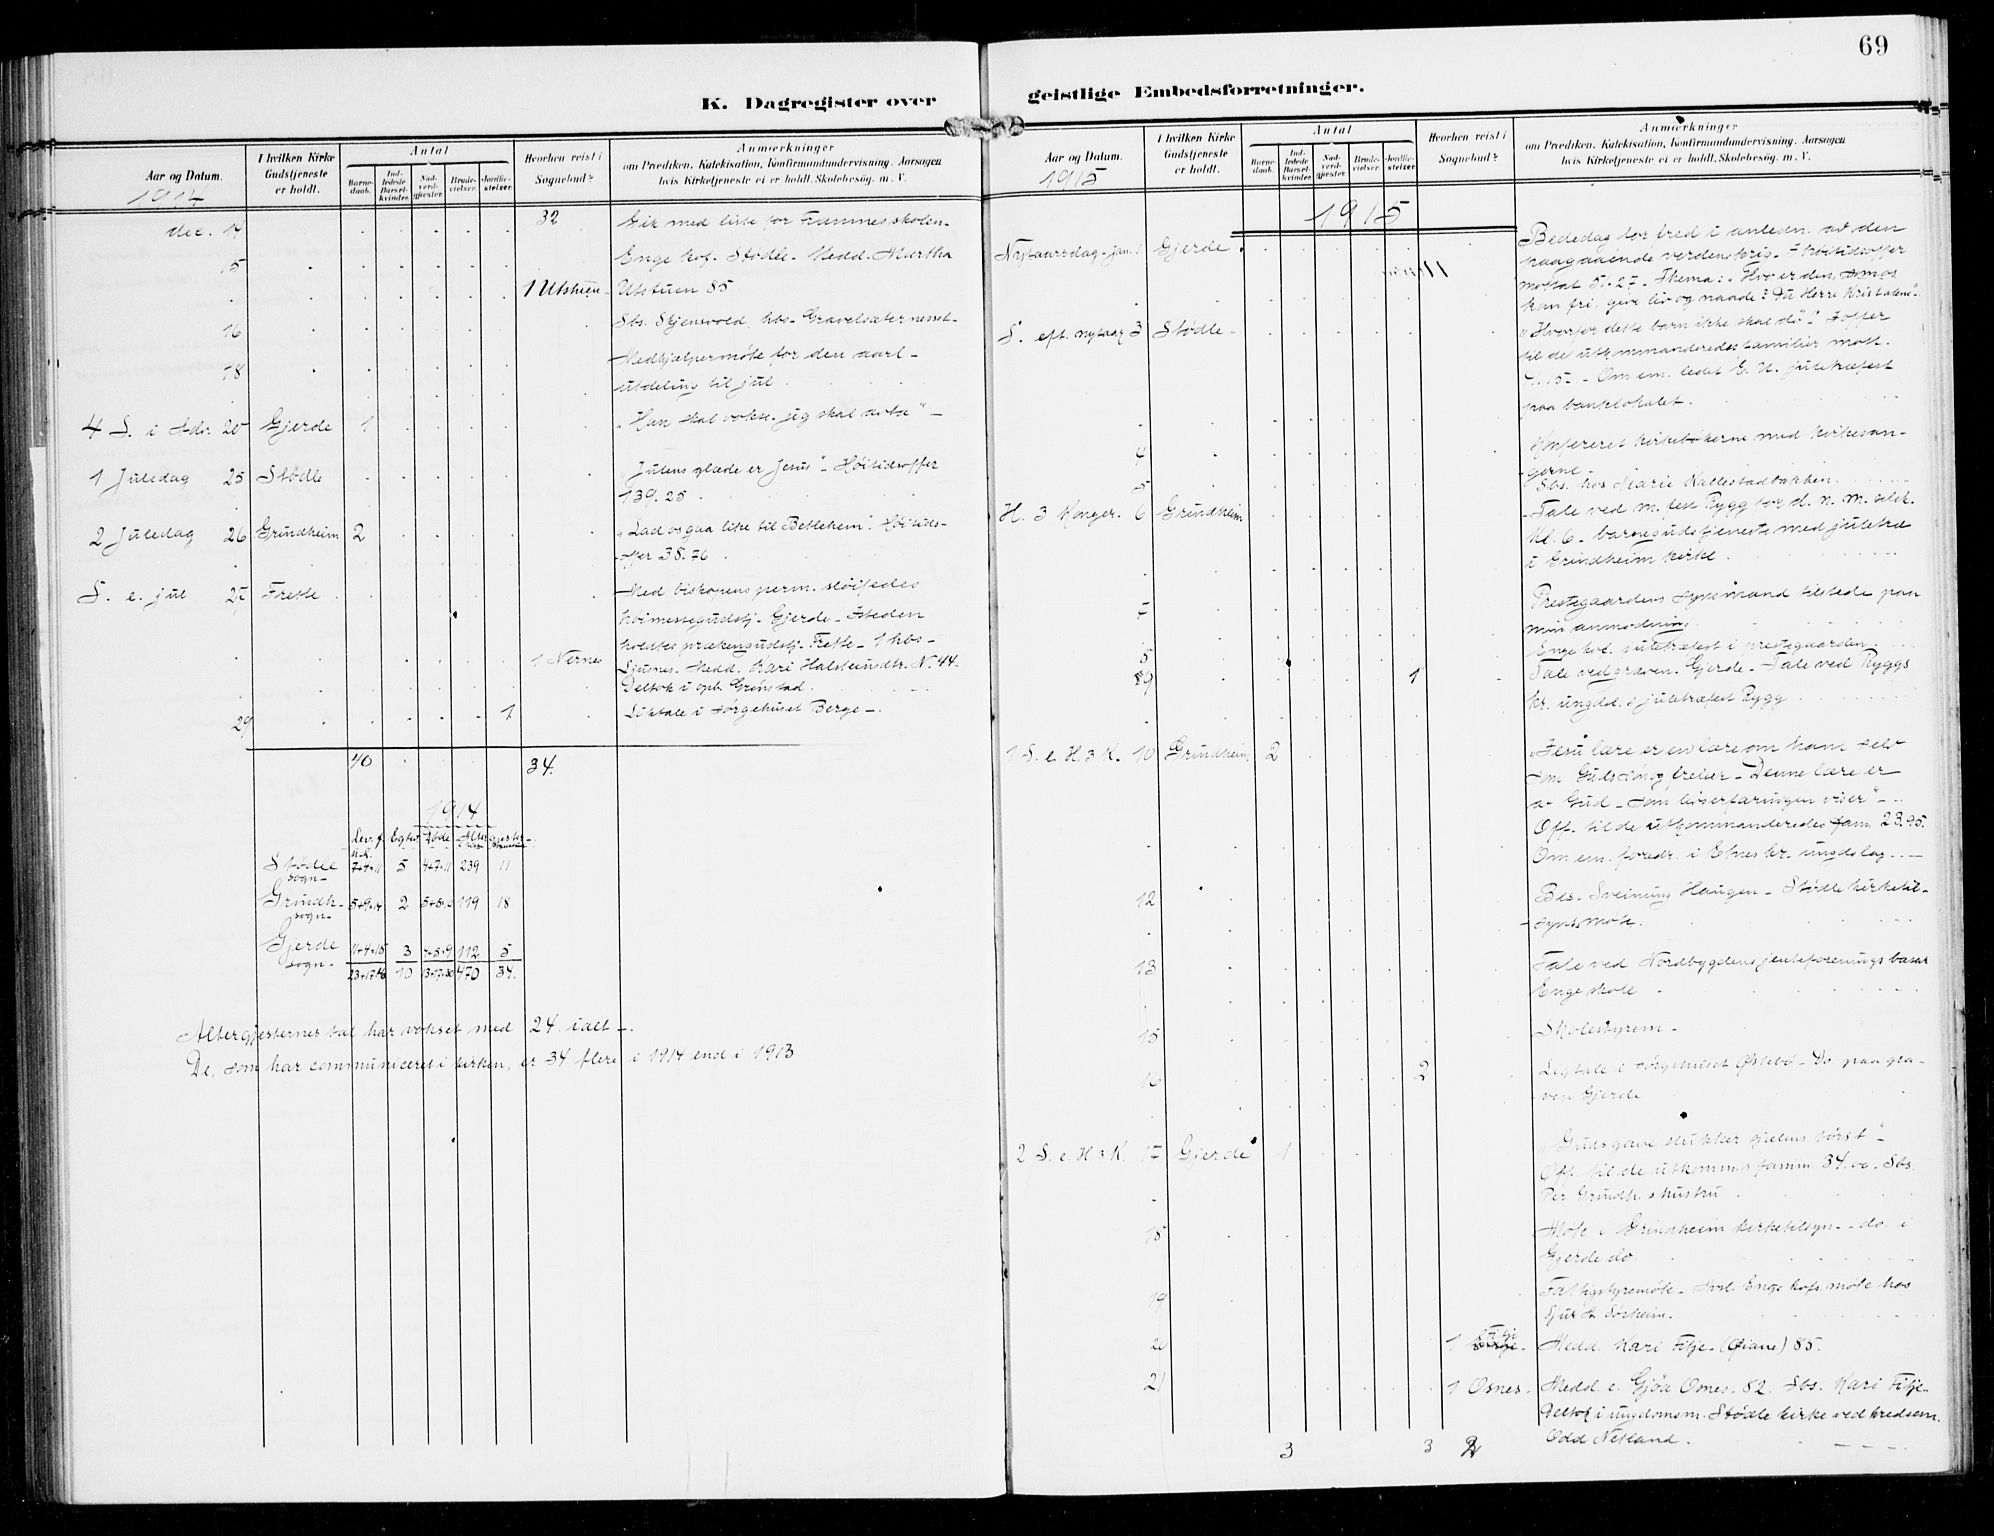 69
K. Dagregister over
geistlige Embedsforretninger.
Aar og Datum.
1914
I hvilken Kirke Gudstjeneste er holdt.
Antal
Barnedaab.
Indledede Barselkvinder.
Nadverdgjester.
Brudevielser.
Jordfæstelser
Hvorhen reist i Sognebud?
Anmærkninger
om Prædiken, Katekisation, Konfirmandundervisning, Aarsagen
hvis Kirketjeneste ei er holdt, Skolebesøg, m. V.
dec. 14 32 Gik med liste for
15 Enge kof. Stødle. Medd. Martha
1 Utstuen Utstuen 85
16 Sbs. Skjensvold, hbs.
18 Medhjælpermöte for den aarl-
utdeling til jul
4 S. i Adv. 20 Gjerde 1 „Han skal vokse, jeg skal avta"
1 Juledag 25 Stødle „Julens glæde er Jesus" - Höitidsoffer
139.25
2 Juledag 26 Grindheim 2 „Lad os gaa like til Betlehem". Höitids-
offer 38.76
S. e. jul 27 Frette Med biskopens perm. slöifedes
höimessegudstj. Gjerde - Isteden
holdtes prækengudstj. Frette - 1 hbs-
1 Nernes Medd. Kari Halsteinsdtr. N. 44.
Deltok i opb. Grinstad.
29 1 Liktale i sørgehuset Berge -
40 34.
1914
Lev. f. Egtev. Døde
Stødle sogn 7+4=11 5 4+7=11 239 11
Grindh. sogn 2 119 18
Gjerde sogn 3 4+5=9 112 5
10 470 34.
Altergjesternes tal har vokset med 24 ialt -
De, som har communiceret i kirken, er 34 flere i 1914 end i 1913
Aar og Datum.
1915
I hvilken Kirke Gudstjeneste er holdt.
Antal
Barnedaab.
Indledede Barselkvinder.
Nadverdgjester.
Brudevielser.
Jordfæstelser
Hvorhen reist i Sognebud?
Anmærkninger
om Prædiken, Katekisation, Konfirmandundervisning, Aarsagen
hvis Kirketjeneste ei er holdt, Skolebesøg, m. V.
1915
Nytaarsdag - jan. 1 Gjerde Bededag for fred i anledn. av den
paagaaende verdenskrig - Höitidsoffer
mottat 51.27 - Thema: „Hvo er den, som os
kan fri, give liv og naade? Du Herre Krist alene"
S. eft. nytaar 3 Stödle - „Hvorfor dette barn ikke skal dö" - Ioffer
til de utkommanderedes familier mott.
Om em. ledet E. U. juletræfest
paa banklokalet.
4 Konfereret kirkebökerne med kirkesan-
gerne
5 Sbs. hos Marie Kallestadbakken.
H. 3 Konger. 6 Grindheim Tale ved m. fest Rygg for d. n. m. selsk.
Kl. 6 - barnegudstjeneste med juletræ
i Grindheim kirke.
7 Prestegaardens synsmænd tilstede paa
min anmodning
Enge kof. juletræfest i prestegaarden
9 1 Tale ved graven. Gjerde - Tale ved Ryggs
kr. ungdd. s juletræfest Rygg
1 S. e. H. 3 K. 10 Grindheim 2 „Jesu lære er en lære om ham selv
som Guds sön og frelser - Denne lære er
av Gud - som livserfaringen viser" -
Off. til de utkommanderedes fam. 23.95.
Om em. foredr. i Etnes kr. ungdslag. -
12 Bes. Sveinung Haugen - Stödle kirketil-
synsmöte
13 Tale ved Nordbygdens jenteforenings basar
Enge skole
15 Skolestyrem -
16 2 Ligtale i sørgehuset Østebö - Do paa gra-
ven Gjerde
2 S. e. H 3 K. 17 Gjerde 1 „Guds gave slukker sjælens törst"
Off. til de utkomm.s famm 34.00. Sbs.
Per Grindh. s hustru
18 Möte i Grindheim kirketilsyn - do. i
Gjerde do
19 Fattigstyremöte - Enge kofs. möte hos
Sjur Sørheim.
20 1 Fitje Medd. Kari Fitje - (Øiane) 85.
21 1 Osnes. Medd. e. Gjöa Osnes. 82. Sbs. Kari Fitje
Deltok i ungdomsm. Stödle kirke ved kredsem.
Odd Netland.
3 3 2